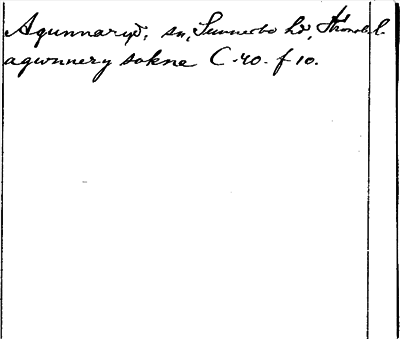 Agunnaryd, sn, Sunnerbo hd, Kronob. l.
agwnnery sokne C. 40. f 10.